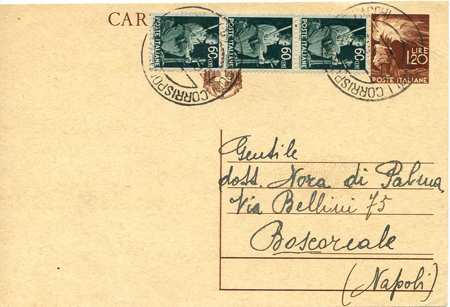 CAR
POSTE ITALIANE 60 CENT.
POSTE ITALIANE 60 CENT.
POSTE ITALIANE 60 CENT.
POSTE ITALIANE 60 CENT.
LIRE
1,20
POSTE ITALIANE
Gentile
dott. Nora di Palma
Via Bellini 75
Boscoreale
(Napoli)